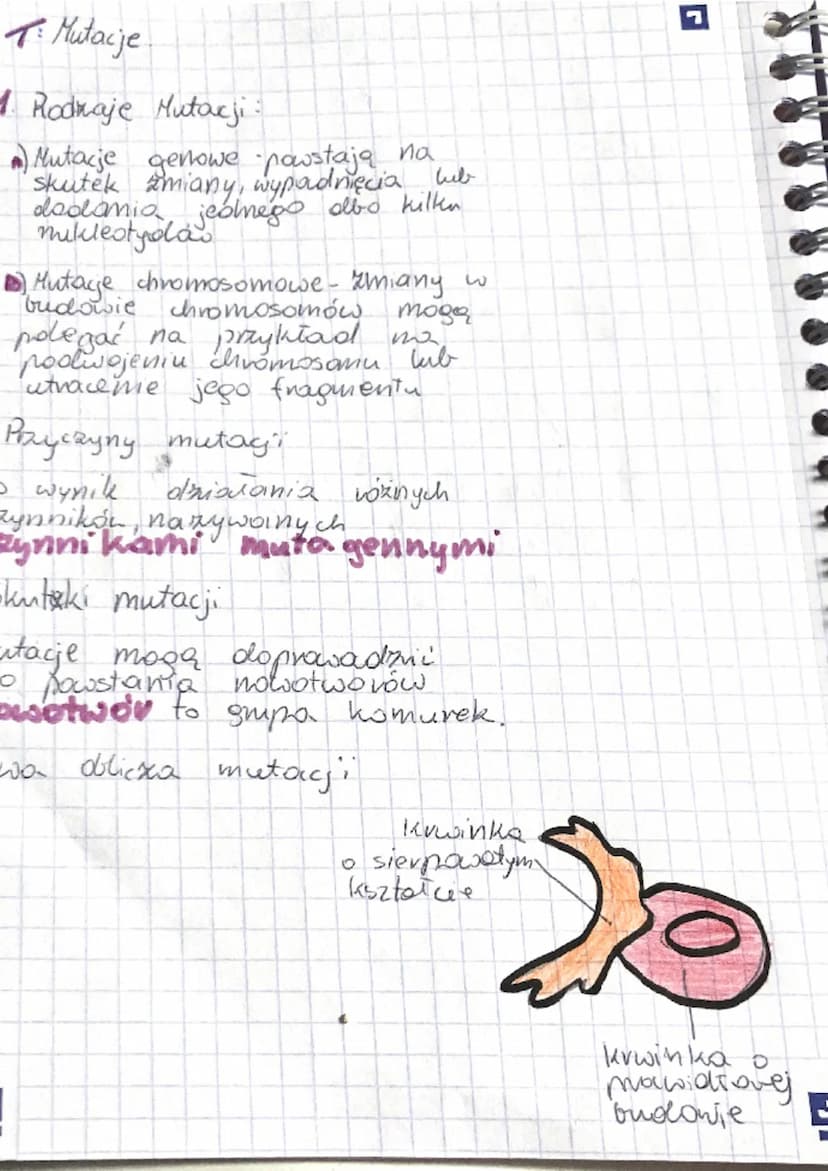 T: Mutacje.
1. Rodzaje Mutacji:
a) Mutacje genowe - powstają na
skutek zmiany, wypadnięcia lub
dodania jednego albo kilku
nukleotydów
b) Mutacje chromosomowe - zmiany w
budowie chromosomów mogą
polegać na przykład na
podwojeniu chromosomu lub
utracenie jego fragmentu
Przyczyny mutacji
o wynik działania różnych
zynników, nazywanych
zynnikami mutagennymi
kutki mutacji
utacje mogą doprowadzić
o powstania nowotworów
owotwór to grupa komurek.
wa oblicza mutacji
krwinka
o sierpowatym
kształcie
krwinka o
prawidłowej
budowie